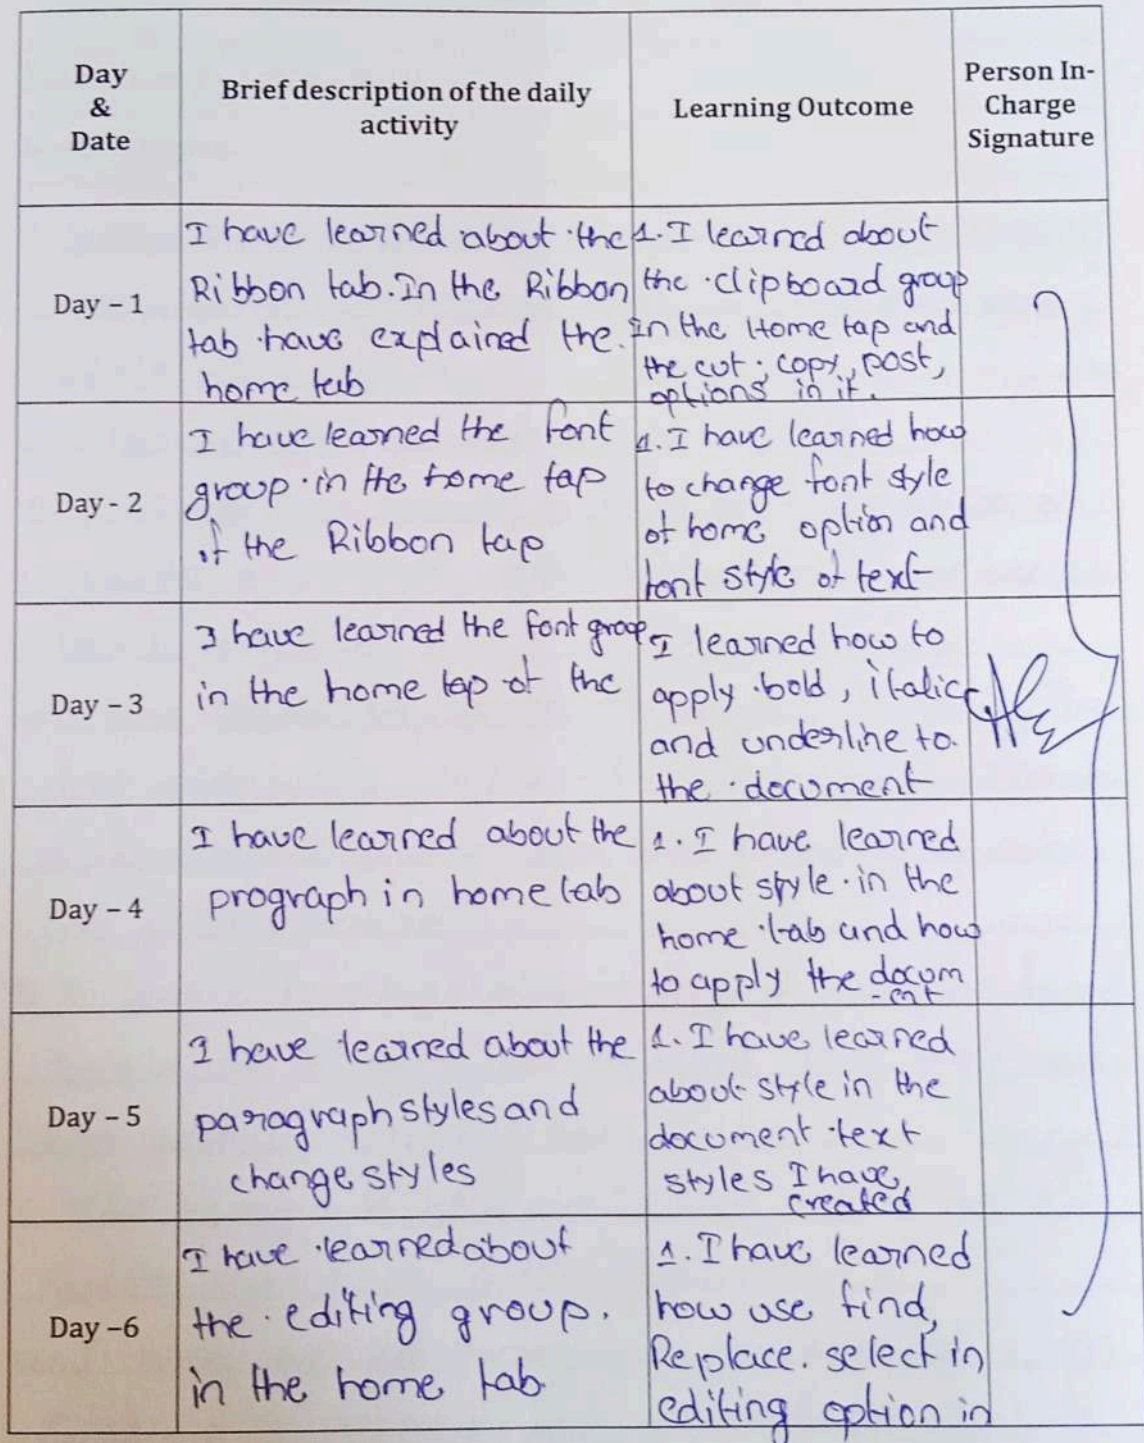 Day
&
Date
Brief description of the daily
activity
Learning Outcome
Person In-
Charge
Signature
Day – 1
I have learned about the
Ribbon tab. In the Ribbon
tab have explained the.
home tab
1. I learned about
the clipboard group
in the Home tap and
the cut, copy, post,
options in it.
Day - 2
I have learned the font
group in the home tap
of the Ribbon tap
1. I have learned how
to change font style
of home option and
font style of text
Day – 3
I have learned the font group
in the home tap of the
I learned how to
apply bold, italic
and underline to.
the document
Day – 4
I have learned about the
prograph in home tab
1. I have learned
about style in the
home tab and how
to apply the docum
-ent
Day – 5
I have learned about the
paragraph styles and
change styles
1. I have learned
about style in the
document text
styles I have
created
Day –6
I have learned about
the editing group.
in the home tab
1. I have learned
how use find,
Replace. select in
editing option in